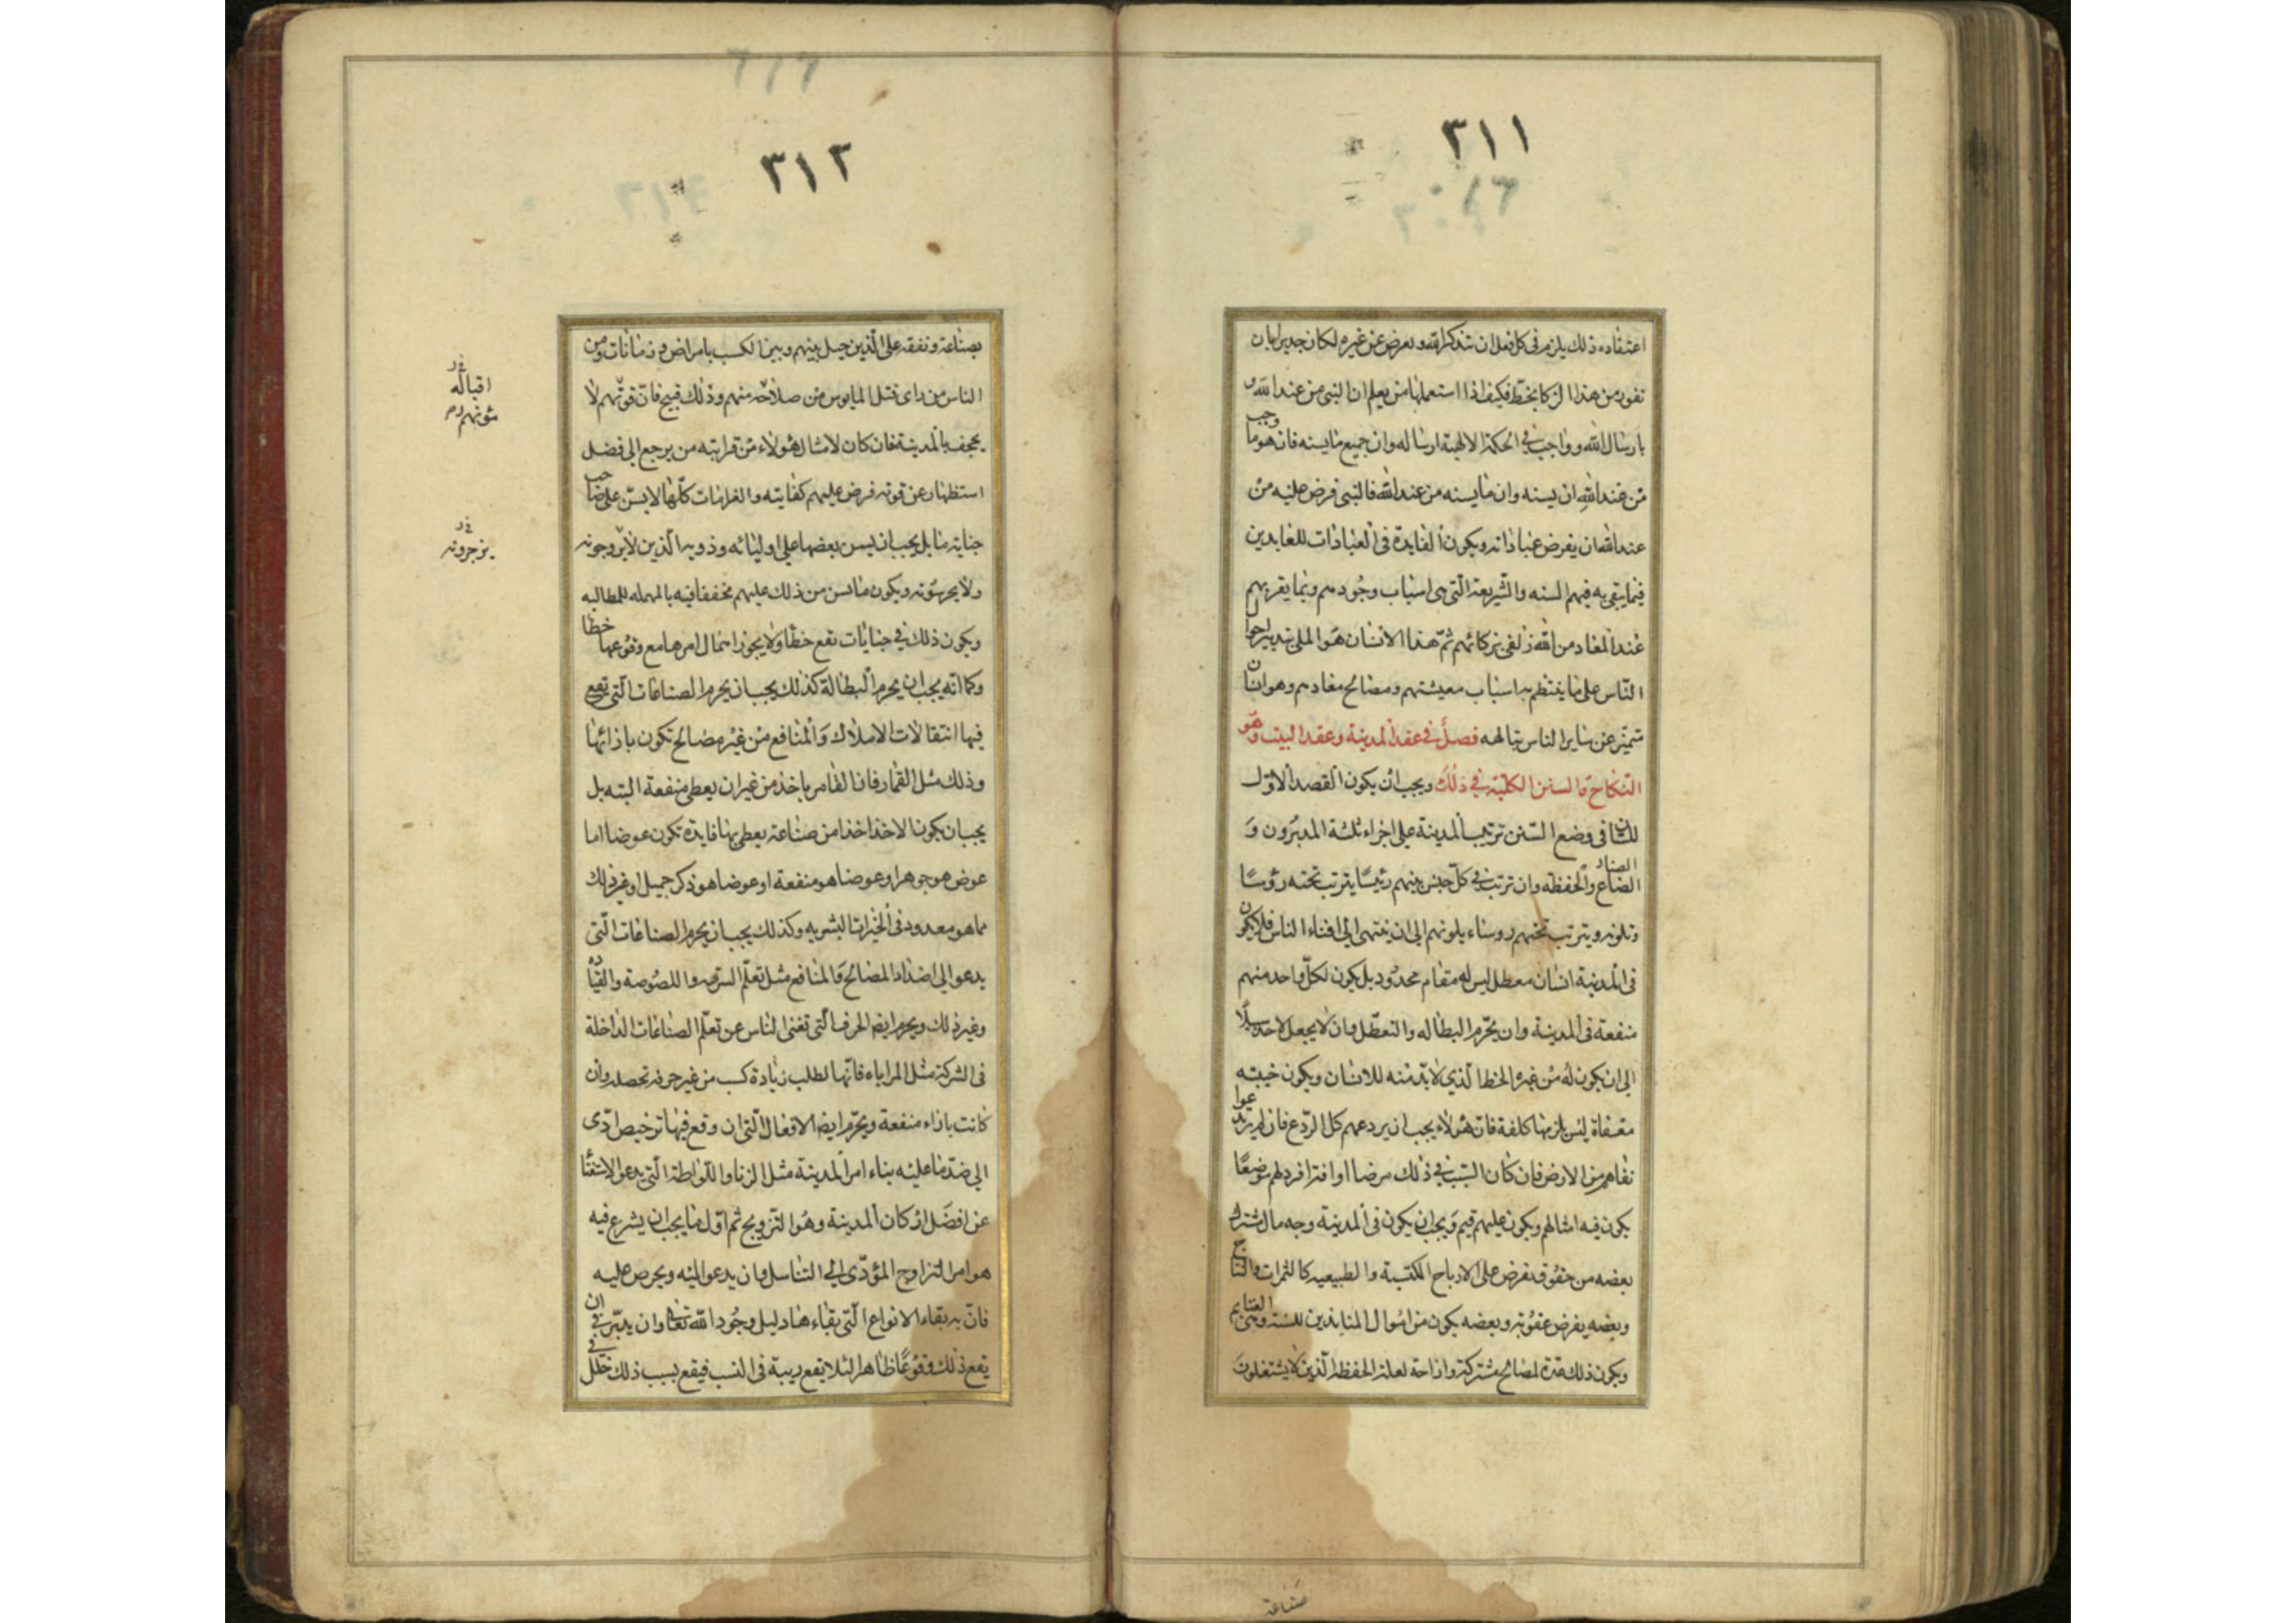 ٣١١
اعتقاده ذلك يلزم في كل فعل ان يتذكر الله ويعرض عن غيره لكان جديرا بان
يفوز من هذا الزكا بحظ فكيف اذا استعملها من يعلم ان النبي من عند الله و
بارسال الله وواجب في الحكمة الالهية ارساله وان جميع ما يسنه فانه هو ما وجب
من عند الله ان يسنه وان ما يسنه من عند الله فالنبي فرض عليه من
عند الله ان يفرض عباداته ويكون الفايدة في العبادات للعابدين
فيما يبقى به فيهم السنه والشريعة التي هي اسباب وجودهم وبما يقربهم
عند المعاد من الله زلفى بزكائهم ثم هذا الانسان هو الملي بتدبير احوال
الناس على ما ينتظم به اسباب معيشتهم ومصالح معادهم وهو انسان
متميز عن ساير الناس بتالهه فصل في عقد المدينة وعقد البيت وهو
النكاح والسنن الكلية في ذلك ويجب ان يكون القصد الاول
للسان في وضع السنن ترتيب المدينة على اجزاء ثلثة المدبرون و
الصناع والحفظه وان يرتب في كل جنس منهم رئيسا يترتب تحته رؤسا
يلونه ويترتب تحتهم روساء يلونهم الى ان ينتهى الى افناء الناس فلا يكون
في المدينة انسان معطل ليس له مقام محدود بل يكون لكل واحد منهم
منفعة في المدينة وان يحرم البطاله والتعطل وان لا يجعل لاحد سبيلا
الى ان يكون له من غيره الحظ الذي لا بد منه للانسان ويكون جنبته
معفاة ليس يلزمها كلفة فان هؤلاء يجب ان يردعهم كل الردع فان لم يرتدعوا
نفاهم من الارض فان كان السبب في ذلك مرضا او افة افرد لهم موضعا
يكون فيه امثالهم ويكون عليهم قيم ويجب ان يكون في المدينة وجه مال مشترك
بعضه من حقوق تفرض على الارباح المكتسبة والطبيعيه كالثمرات والنتاج
وبعضه يفرض عقوبة وبعضه يكون من اموال المنابذين للسنة وهي الغنايم
ويكون ذلك عدة لمصالح مشتركة وازاحة لعلة الحفظة الذين لا يشتغلون
صناعة
٣١٢
بصناعة ونفقة على الذين حيل بينهم وبين الكسب بامراض وزمانات ومن
الناس من راى قتل المايوس من صلاحه منهم وذلك قبيح فان قوتهم لا
يجحف بالمدينة فان كان لامثال هؤلاء من قرابته من يرجع الى فضل
استظهار عن قوته فرض عليهم كفايته والغرامات كلها لا يسن على صاحب
جناية ما بل يجب ان يسن بعضها على اوليائه وذويه الذين لا يزجرونه
ولا يحرسونه ويكون ما يسن من ذلك عليهم مخففا فيه بالمهله للمطالبه
ويكون ذلك في جنايات تقع خطأ ولا يجوز اهمال امرها مع وقوعها خطأ
وكما انه يجب ان يحرم البطالة كذلك يجب ان يحرم الصناعات التي تقع
فيها انتقالات الاملاك والمنافع من غير مصالح تكون بازائها
وذلك مثل القمار فان القامر ياخذ من غير ان يعطى منفعة البته بل
يجب ان يكون الاخذ اخذا من صناعة يعطى بها فايدة تكون عوضا اما
عوض هو جوهر او عوضا هو منفعة او عوضا هو ذكر جميل او غير ذلك
مما هو معدود في الخيرات البشريه وكذلك يجب ان يحرم الصناعات التي
يدعو الى اضداد المصالح والمنافع مثل تعلم السرقه واللصوصة والقيادة
وغير ذلك ويحرم ايضا الحرف التي تغنى الناس عن تعلم الصناعات الداخلة
في الشركة مثل المراباه فانها لطلب زيادة كسب من غير حرفة تحصله وان
كانت بازاء منفعة ويحرم ايضا الافعال التي ان وقع فيها ترخيص ادى
الى ضد ما عليه بناء امر المدينة مثل الزنا واللواطة التي يدعو الى الاستغناء
عن افضل اركان المدينة وهو التزويج ثم اول ما يجب ان يشرع فيه
هو امر التزاوج المؤدى الى التناسل وان يدعو اليه ويحرص عليه
فان به بقاء الانواع التي بقاءها دليل وجود الله تعالى وان يدبر في ان
يقع ذلك وقوعا ظاهرا لئلا يقع ريبة في النسب فيقع بسبب ذلك خلل في
اقباله
مؤنهم
يزجرونه